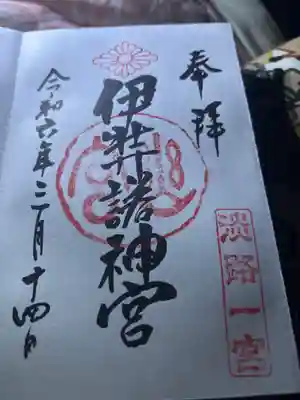 奉拝
淡路一宮
伊弉諾神宮
令和六年三月十四日